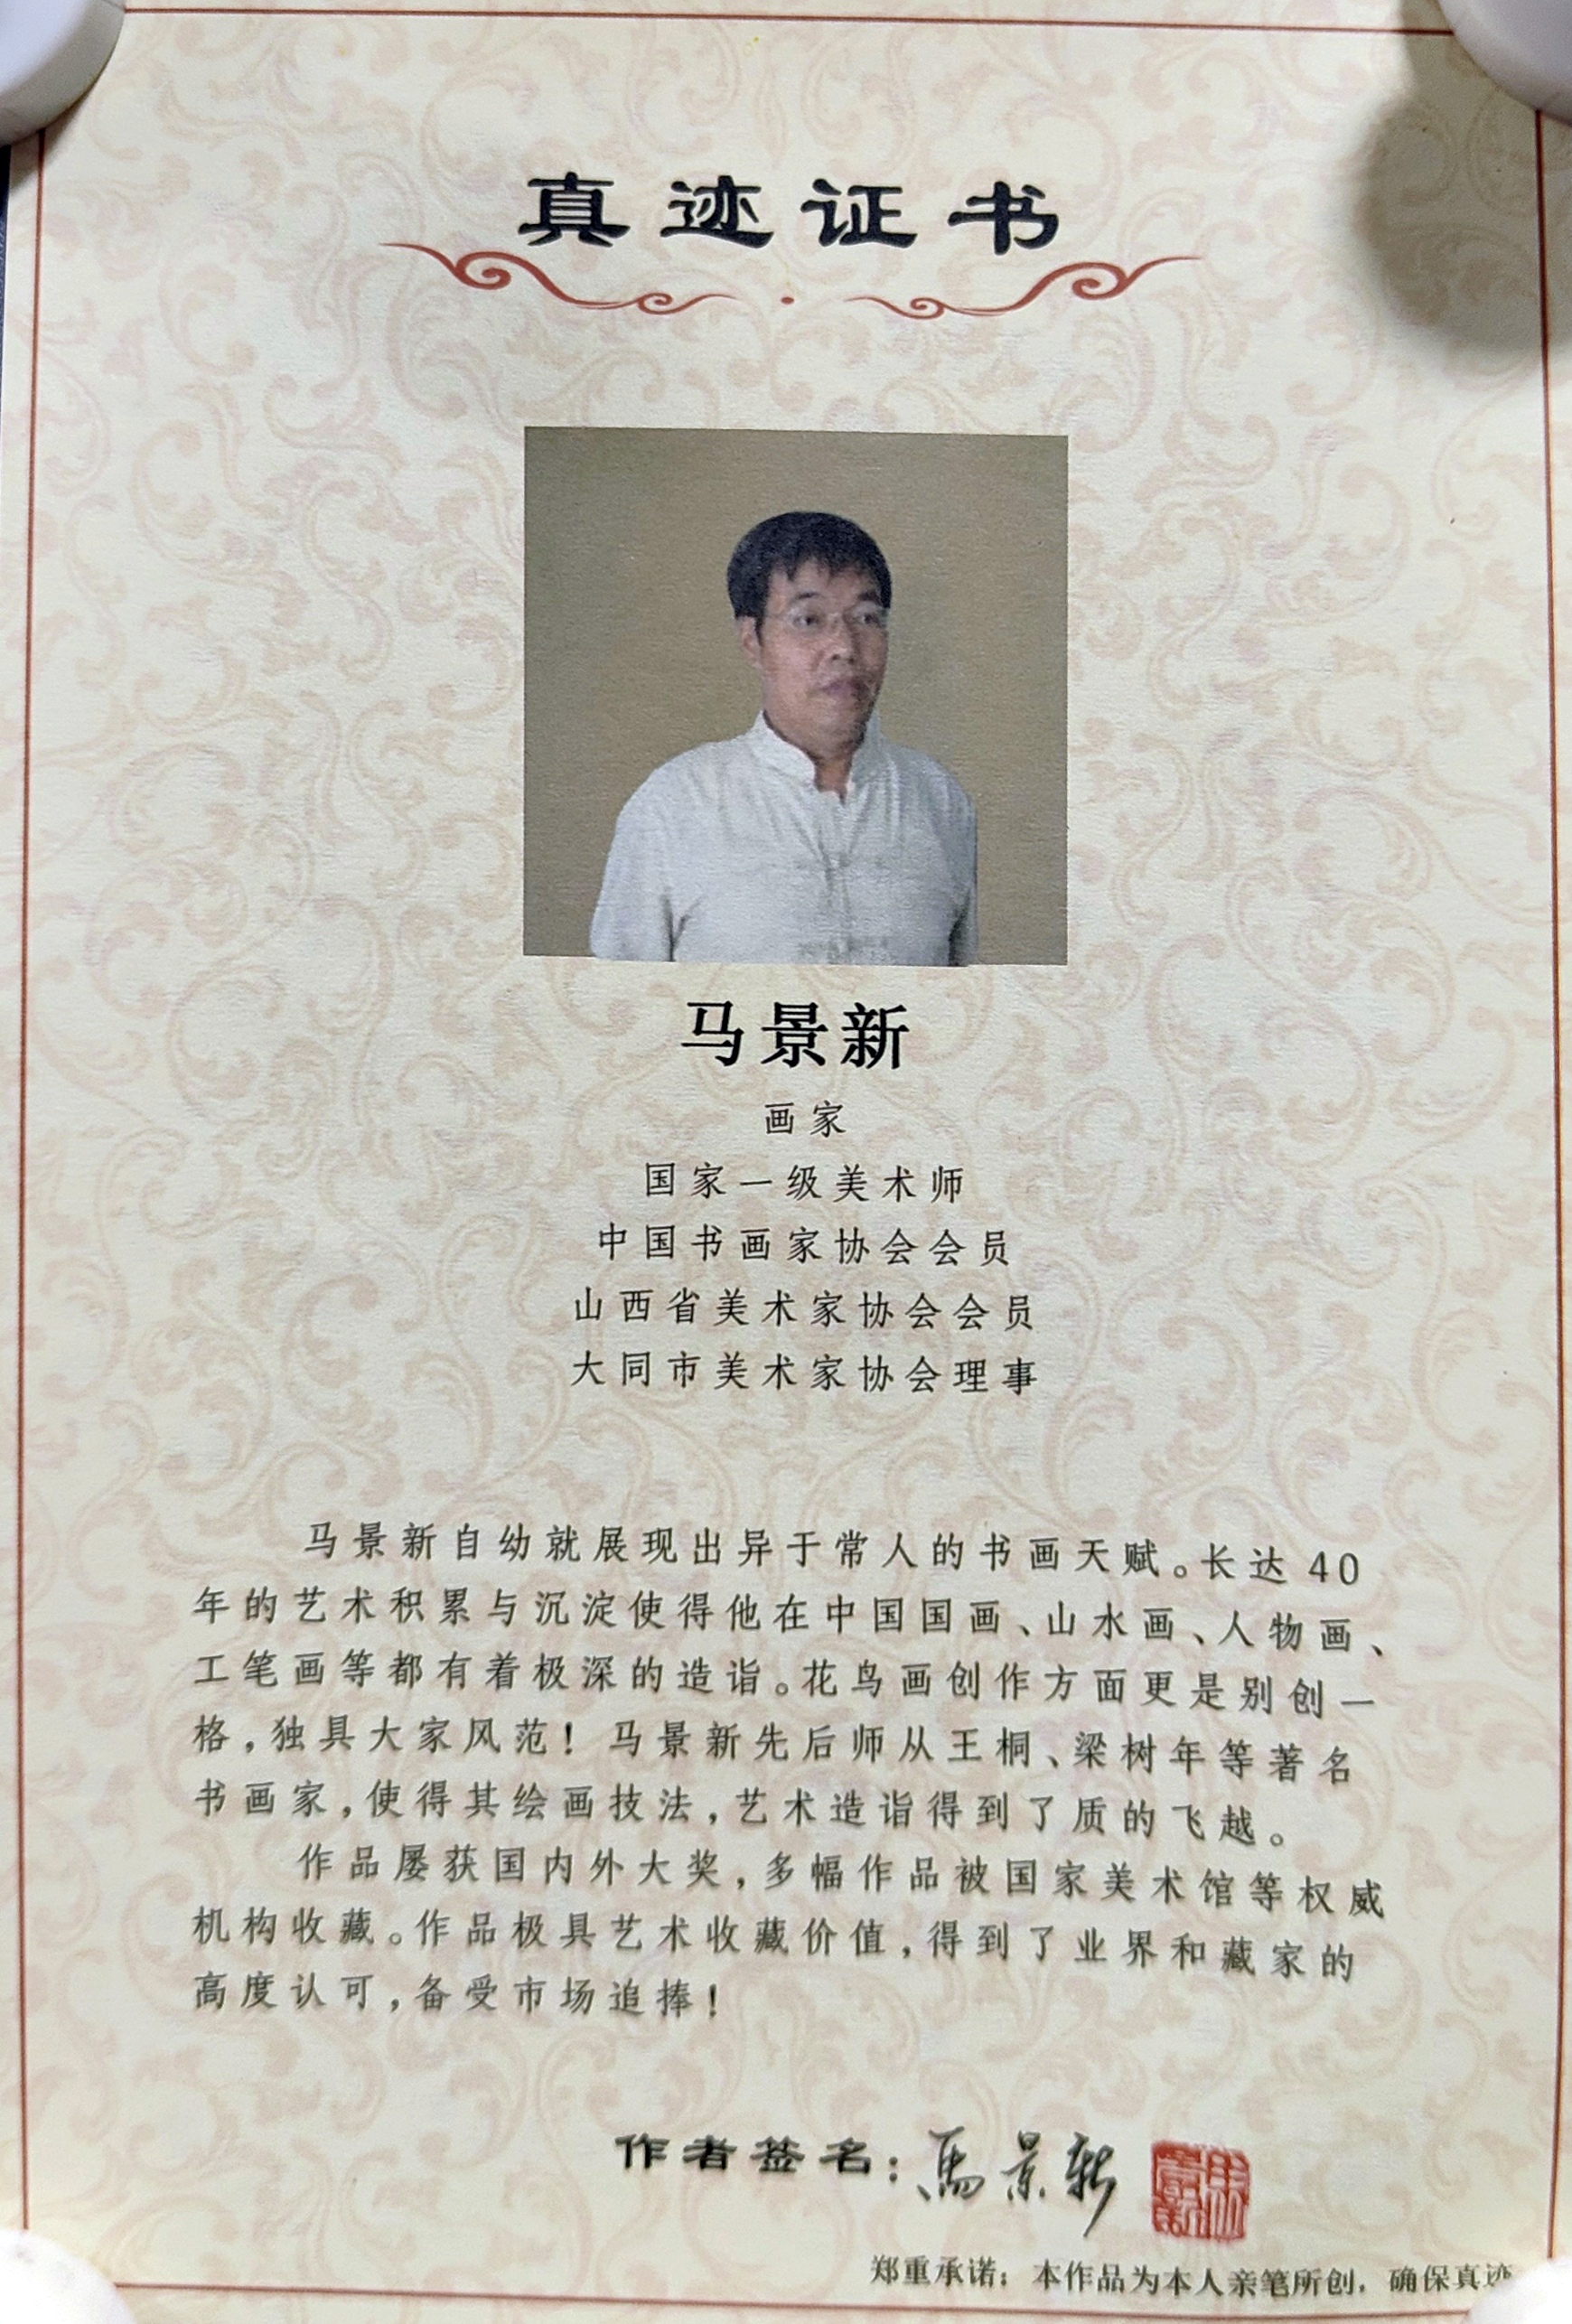 真迹证书
马景新
画家
国家一级美术师
中国书画家协会会员
山西省美术家协会会员
大同市美术家协会理事
马景新自幼就展现出异于常人的书画天赋。长达40
年的艺术积累与沉淀使得他在中国国画、山水画、人物画、
工笔画等都有着极深的造诣。花鸟画创作方面更是别创一
格，独具大家风范！马景新先后师从王桐、梁树年等著名
书画家，使得其绘画技法，艺术造诣得到了质的飞越。
作品屡获国内外大奖，多幅作品被国家美术馆等权威
机构收藏。作品极具艺术收藏价值，得到了业界和藏家的
高度认可，备受市场追捧！
作者签名：馬景新
郑重承诺：本作品为本人亲笔所创，确保真迹